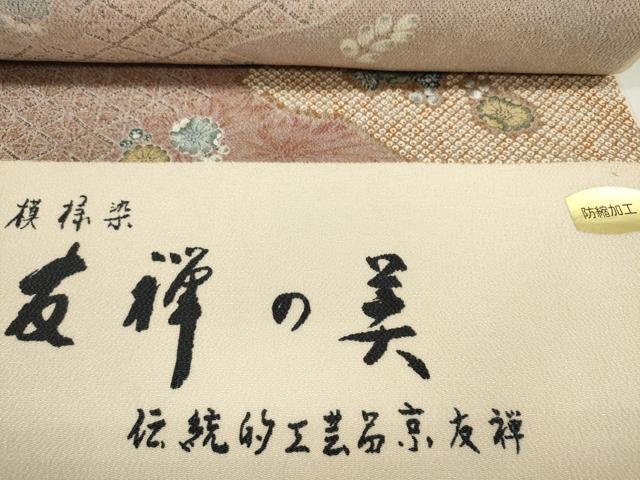 模様染
防縮加工
友禅の美
伝統的工芸品京友禅